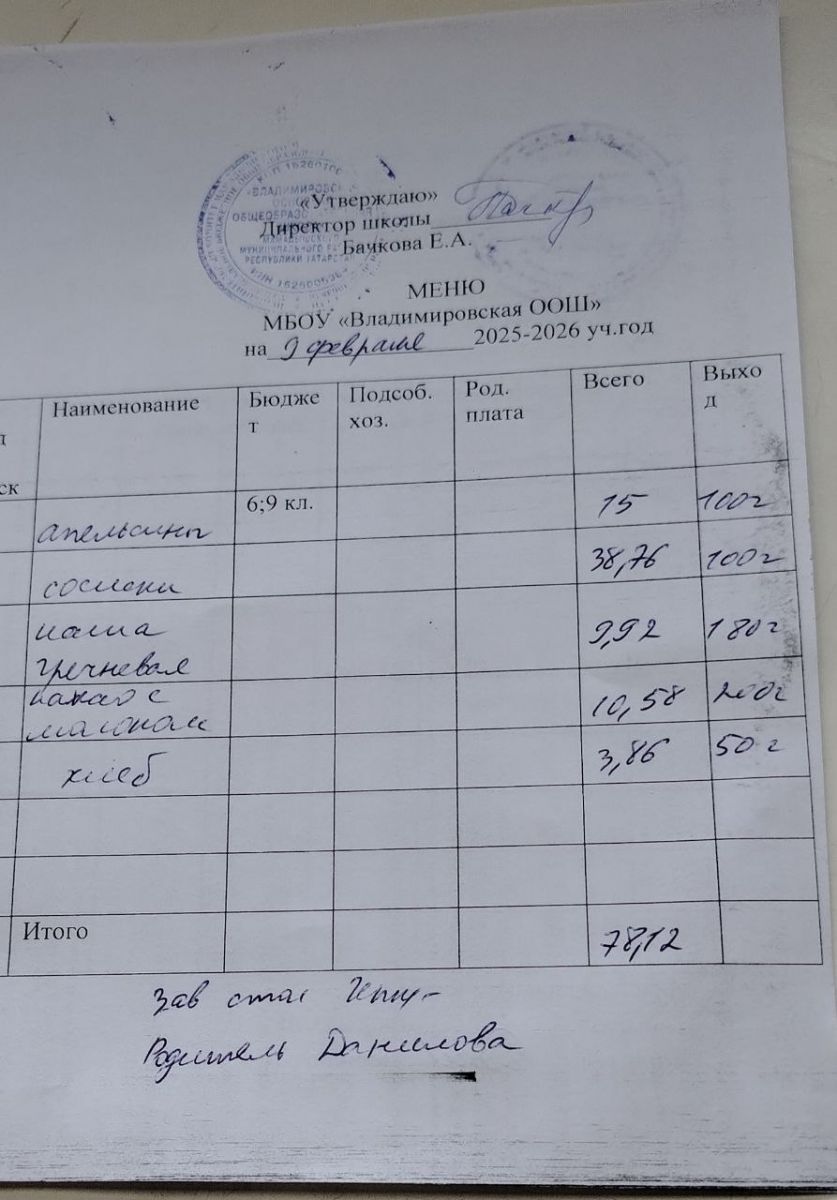 «Утверждаю»
Директор школы
Бачкова Е.А.
МЕНЮ
МБОУ «Владимировская ООШ»
на 9 февраля 2025-2026 уч.год
Наименование Бюдже Подсоб. Род. Всего Выхо
т хоз. плата д
ск
6;9 кл.
апельсины 15 100г
сосиски 38,76 100г
каша 9,92 180г
гречневая
какао с 10,58 200г
молоком
хлеб 3,86 50г
Итого 78,12
Зав стол
Родитель Данилова